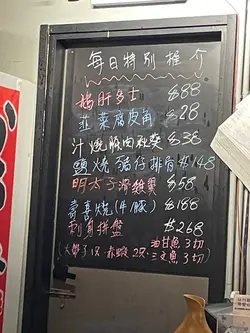 每日特別推介
鵝肝多士 $88
韮菜腐皮角 $28
汁燒豚肉 $38
鹽燒豬仔排骨 $148
明太子滑雞翼 $68
壽喜燒(牛/豚) $188
刺身拼盤 $268
油甘魚3切
(大帶子1只 赤蝦2只 三文魚3切)